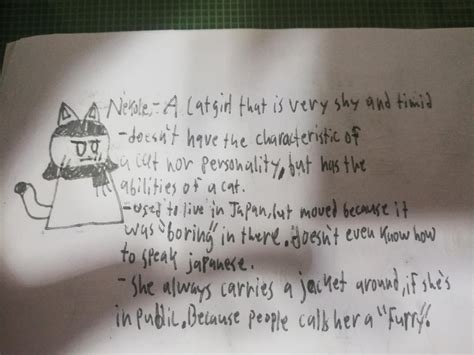 Nekole,- A Catgirl that is very shy and timid
-doesn't have the characteristic of
a cat nor personality, but has the
abilities of a cat.
-used to live in Japan, but moved because it
was "boring" in there. Doesn't even know how
to speak japanese.
- She always carries a jacket around, if she's
in public. Because people calls her a "Furry".